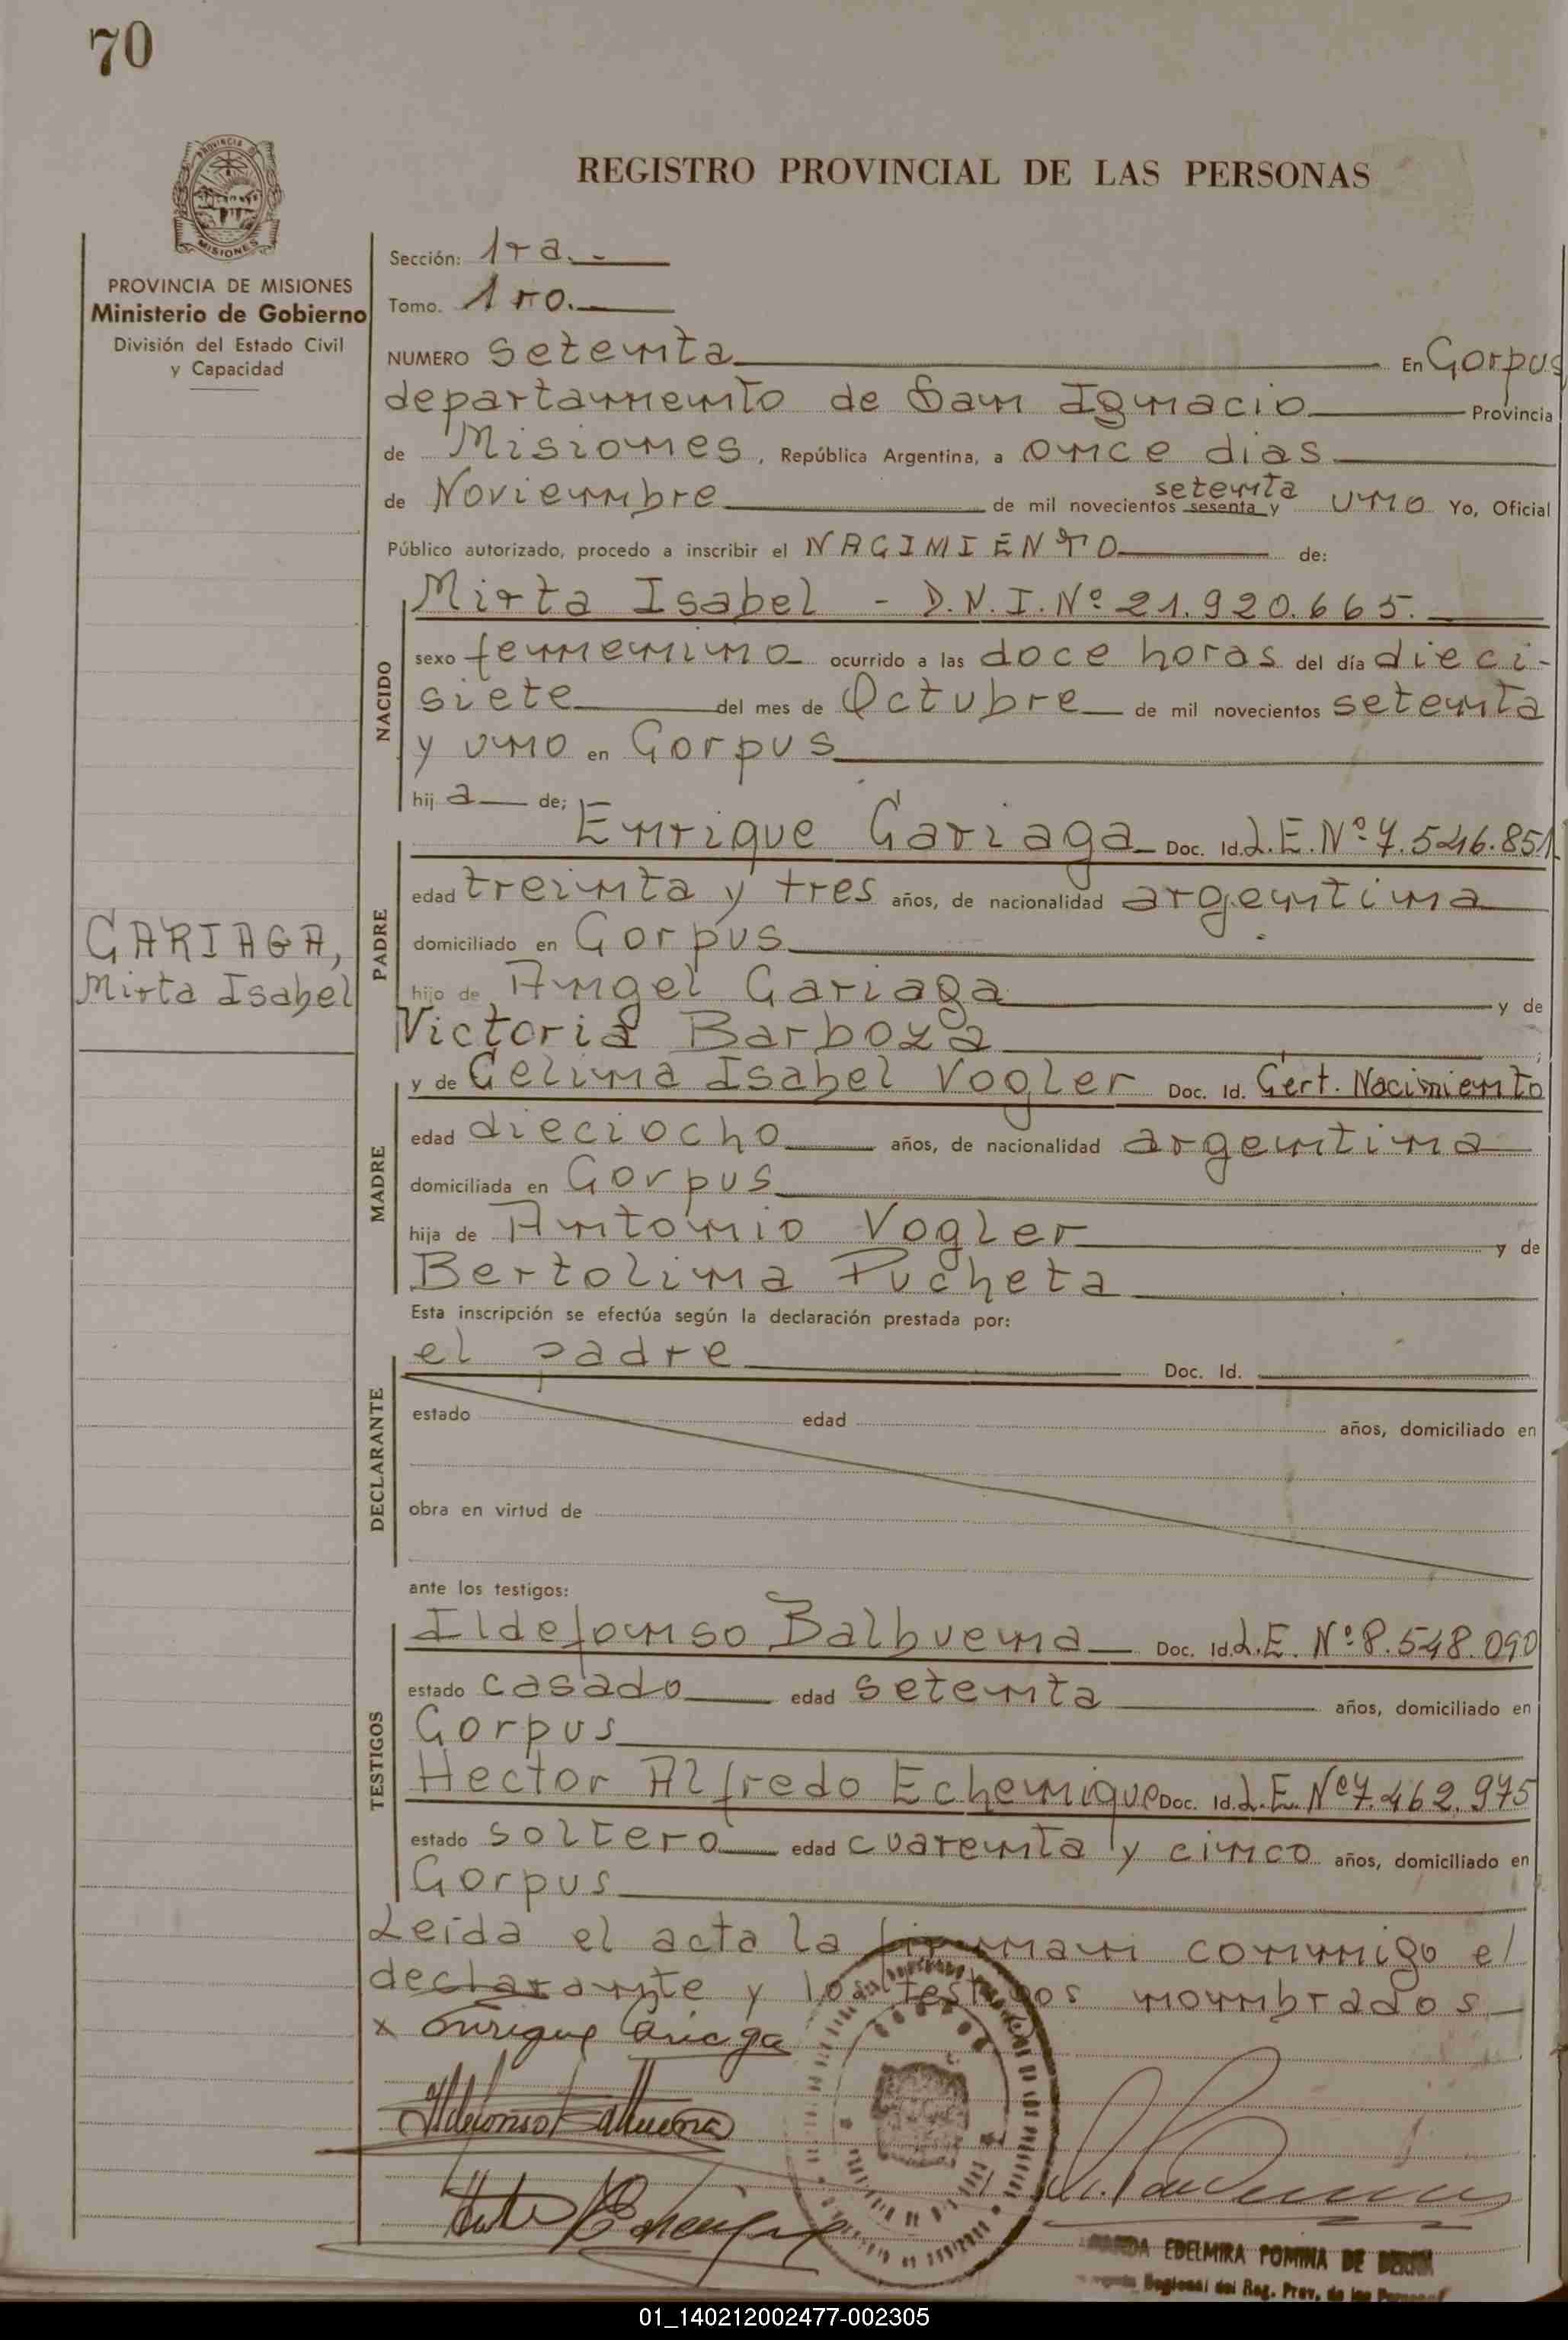 70
REGISTRO PROVINCIAL DE LAS PERSONAS
PROVINCIA DE MISIONES
Ministerio de Gobierno
División del Estado Civil
y Capacidad
Sección: 1ra.
Tomo. 1ro.
NUMERO setenta En Corpus
departamento de San Ignacio Provincia
de Misiones, República Argentina, a once dias
setenta
de Noviembre de mil novecientos sesenta y uno Yo, Oficial
Público autorizado, procedo a inscribir el NACIMIENTO de:
NACIDO
Mirta Isabel - D.N.I.Nº 21.920.665.
sexo femenino ocurrido a las doce horas del día dieci-
siete del mes de Octubre de mil novecientos setenta
y uno en Corpus
hij a de;
PADRE
Enrique Cariaga Doc. Id. L.E.Nº 7.546.851
edad treinta y tres años, de nacionalidad argentina
domiciliado en Corpus
CARIAGA,
Mirta Isabel
hijo de Angel Cariaga y de
Victoria Barboza
MADRE
y de Celina Isabel Vogler Doc. Id. Cert. Nacimiento
edad dieciocho años, de nacionalidad argentina
domiciliada en Corpus
hija de Antonio Vogler y de
Bertolina Pucheta
Esta inscripción se efectúa según la declaración prestada por:
DECLARANTE
el padre Doc. Id.
estado edad años, domiciliado en
obra en virtud de
ante los testigos:
TESTIGOS
Ildefonso Balbuena Doc. Id. L.E. Nº 8.548.090
estado casado edad setenta años, domiciliado en
Corpus
Hector Alfredo Echenique Doc. Id. L.E. Nº 7.462.975
estado soltero edad cuarenta y cinco años, domiciliado en
Corpus
Leída el acta la firman conmigo el
declarante y los testigos nombrados
x Enrique Cariaga
Ildefonso Balbuena
EDELMIRA POMINA DE
Regional del Reg. Prov. de las
01_140212002477-002305